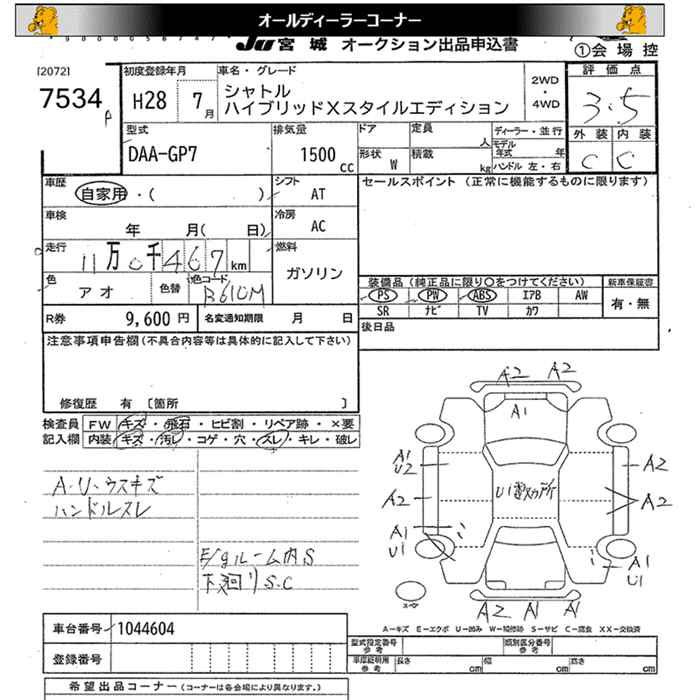 オールディーラーコーナー
JU宮城 オークション出品申込書
①会場控
[2072]
7534
初度登録年月
H28 7月
車名・グレード
シャトル
ハイブリッドXスタイルエディション
2WD
・
4WD
評価点
3.5
外装 内装
C C
型式
DAA-GP7
排気量
1500cc
ドア 定員 人
形状 W 積載 kg
ディーラー・並行
モデル年式 年
ハンドル 左・右
車歴 自家用・( )
シフト AT
セールスポイント (正常に機能するものに限ります)
車検 年 月( 日)
冷房 AC
走行 11万0千467km
燃料 ガソリン
色 アオ 色替 色コード B610M
装備品(純正品に限り○をつけてください) 新車保証書
PS PW ABS エアB AW 有・無
SR ナビ TV カワ
R券 9,600円 名変通知期限 月 日
後日品
注意事項申告欄(不具合内容等は具体的に記入して下さい)
修復歴 有 〔箇所 〕
検査員 FW キズ・飛石・ヒビ割・リペア跡・×要
記入欄 内装 キズ・汚レ・コゲ・穴・スレ・キレ・破レ
A・U・ウスキズ
ハンドルスレ
E/gルーム内S
下廻りS.C
A2 A2
A1
A1
U2
A2
A2
A2
A1
U1
A1
U1
A2 A1 A1
スペア
A-キズ E-エクボ U-凹み W-補修跡 S-サビ C-腐食 XX-交換済
車台番号 1044604
登録番号
型式指定番号 参考
類別区分番号 参考
車庫証明用 参考 長さ cm 幅 cm 高さ cm
希望出品コーナー (コーナーは各会場により異なります。)